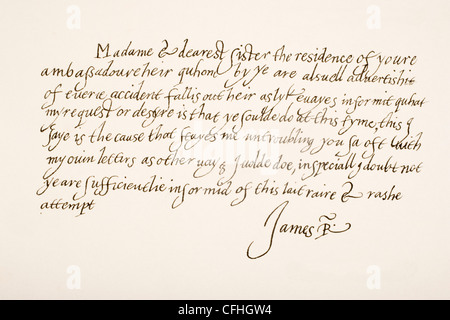 Madame & dearest sister the residence of youre
ambassadoure heir quhom by ye are alsuell advertishit
of everie accident fallis out heir as lykeuayes informit quhat
my request or desyre is that ye soulde do at this tyme, this I
saye is the cause that stayes me untroubling you sa oft uith
my ouin letters as other uayes I uolde doe, in speciall I doubt not
ye are sufficientlie informid of this lait raire & rashe
attempt
James R.
alamy
Image ID: CFHGW4
www.alamy.com